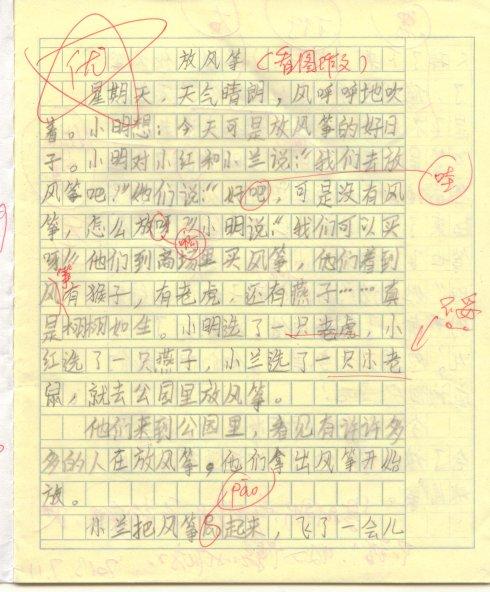 优
放风筝（看图作文）
星期天，天气晴朗，风呼呼地吹
着。小明想：今天可是放风筝的好日
子。小明对小红和小兰说：“我们去放
风筝吧！”她们说：“好吧，可是没有风
哇
筝，怎么放呀？”小明说：“我们可以买
啊
呀！”他们到商场里买风筝，他们看到
筝
风有猴子，有老虎，还有燕子……真
是栩栩如生。小明选了一只老虎，小
红选了一只燕子，小兰选了一只小老
鼠，就去公园里放风筝。
他们来到公园里，看见有许许多
多的人在放风筝。他们拿出风筝开始
放。
pāo
小兰把风筝起来，飞了一会儿